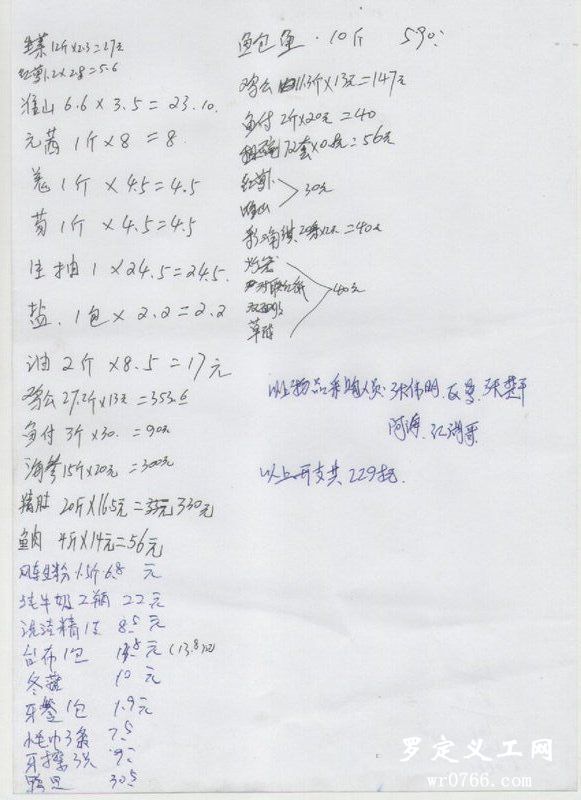 生菜12斤×2.3=27元
红萝1.2×2.8=5.6
淮山 6.6×3.5=23.10
元茜 1斤×8=8
羌 1斤×4.5=4.5
葱 1斤×4.5=4.5
生抽 1×24.5=24.5
盐.1包×2.2=2.2
油 2斤×8.5=17元
鸡公27.2斤×13元=353.6
鱼付 3斤×30.=90元
海参15斤×20元=300元
猪肚 20斤×16.5元=330元
鱼肉 4斤×14元=56元
生粉1.5斤6.8元
纯牛奶2瓶 22元
洗洁精1支 8.5元
台布1包 元(13.8)
冬菇 10元
牙签1包 1.9元
毛巾3条 7.5
牙擦3只 9元
鸭足 30.5
鱼包鱼.10斤 590
鸡公 11.3斤×13元=147元
鱼付 2斤×20元=40
72套×0.8元=56元
红萝卜
淮山
30元
=40元
40元
草
以上物品采购人员:张伟明.
阿海.江湖哥
以上开支共2291元.
罗定义工网
wr0766.com